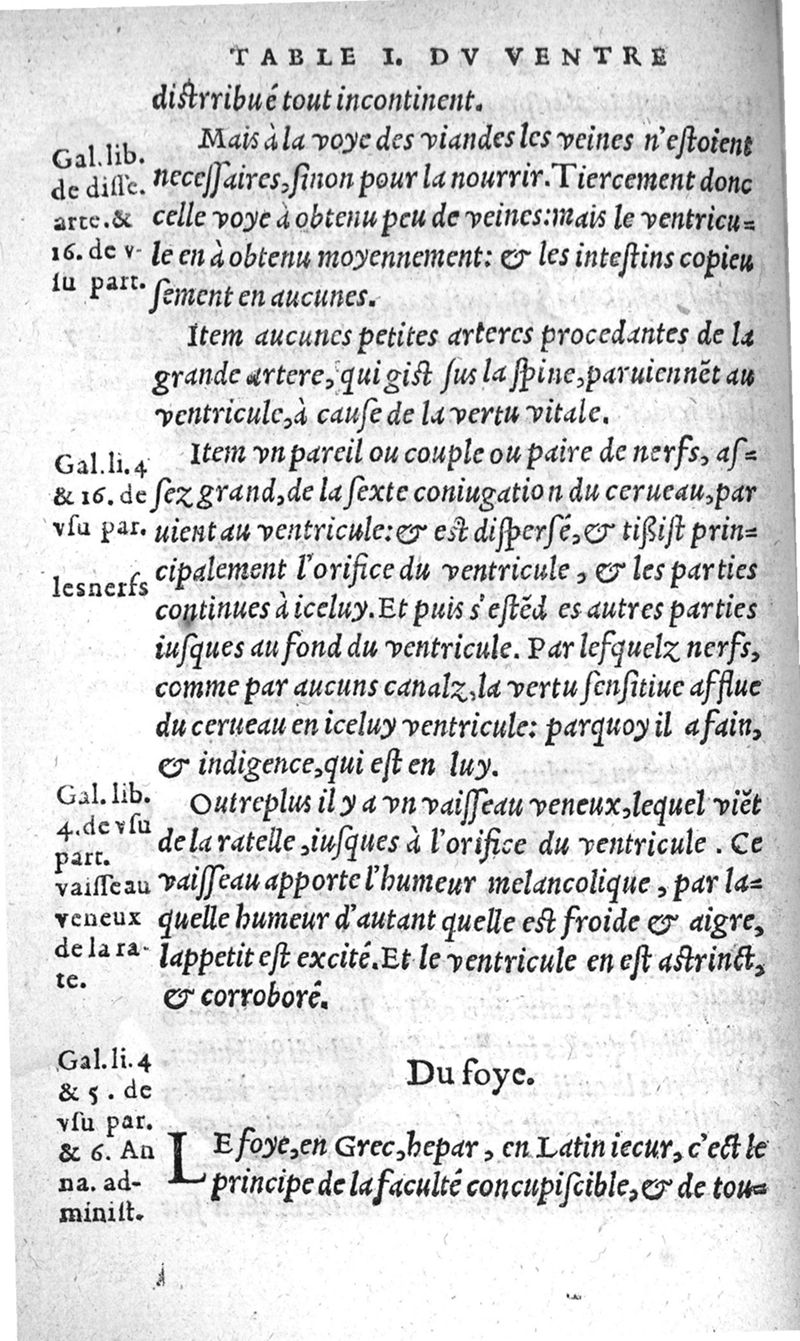 TABLE I. DV VENTRE
distrribué tout incontinent.
Mais à la voye des viandes les veines n'eſtoient
neceſſaires, ſinon pour la nourrir. Tiercement donc
celle voye à obtenu peu de veines: mais le ventricu=
le en à obtenu moyennement: & les inteſtins copieu
ſement en aucunes.
Gal. lib.
de diſſe.
arte. &
16. de v-
ſu part.
Item aucunes petites arteres procedantes de la
grande artere, qui giſt ſus la ſpine, paruiennēt au
ventricule, à cauſe de la vertu vitale.
Item vn pareil ou couple ou paire de nerfs, aſ=
ſez grand, de la ſexte coniugation du cerueau, par
uient au ventricule: & eſt diſperſé, & tißiſt prin=
cipalement l'orifice du ventricule, & les parties
continues à iceluy. Et puis s'eſtēd es autres parties
iuſques au fond du ventricule. Par leſquelz nerfs,
comme par aucuns canalz, la vertu ſenſitiue afflue
du cerueau en iceluy ventricule: parquoy il a fain,
& indigence, qui eſt en luy.
Gal. li. 4
& 16. de
vſu par.
les nerfs
Outreplus il y a vn vaiſſeau veneux, lequel viēt
de la ratelle, iuſques à l'orifice du ventricule. Ce
vaiſſeau apporte l'humeur melancolique, par la=
quelle humeur d'autant quelle eſt froide & aigre,
lappetit eſt excité. Et le ventricule en eſt aſtrinct,
& corroboré.
Gal. lib.
4. de vſu
part.
vaiſſeau
veneux
de la ra-
te.
Du foye.
LE foye, en Grec, hepar, en Latin iecur, c'eſt le
principe de la faculté concupiſcible, & de tou=
Gal. li. 4
& 5. de
vſu par.
& 6. An
na. ad-
miniſt.